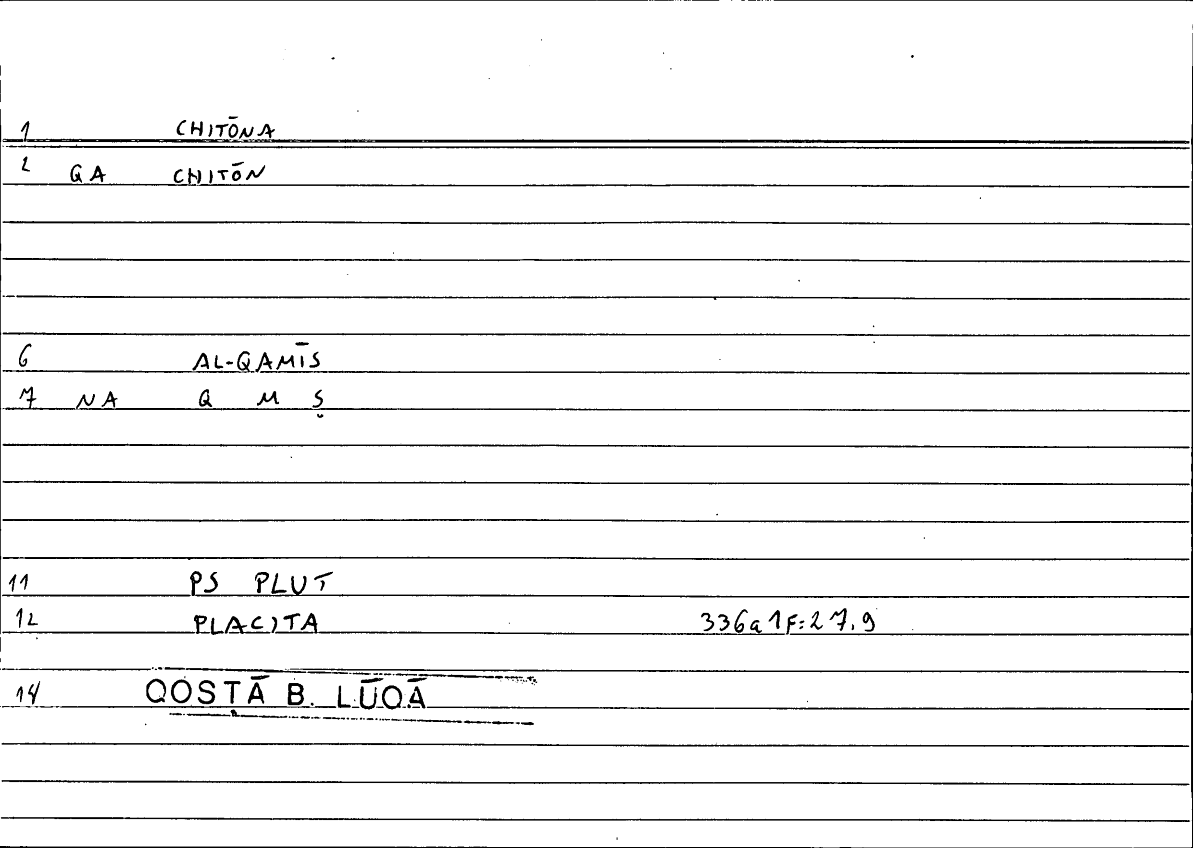 1 CHITŌNA
2 GA CHITŌN
6 AL-QAMĪS
7 NA Q M Ṣ
11 PS PLUT
12 PLACITA 336a1F:27.9
14 QOSṬĀ B. LŪQĀ